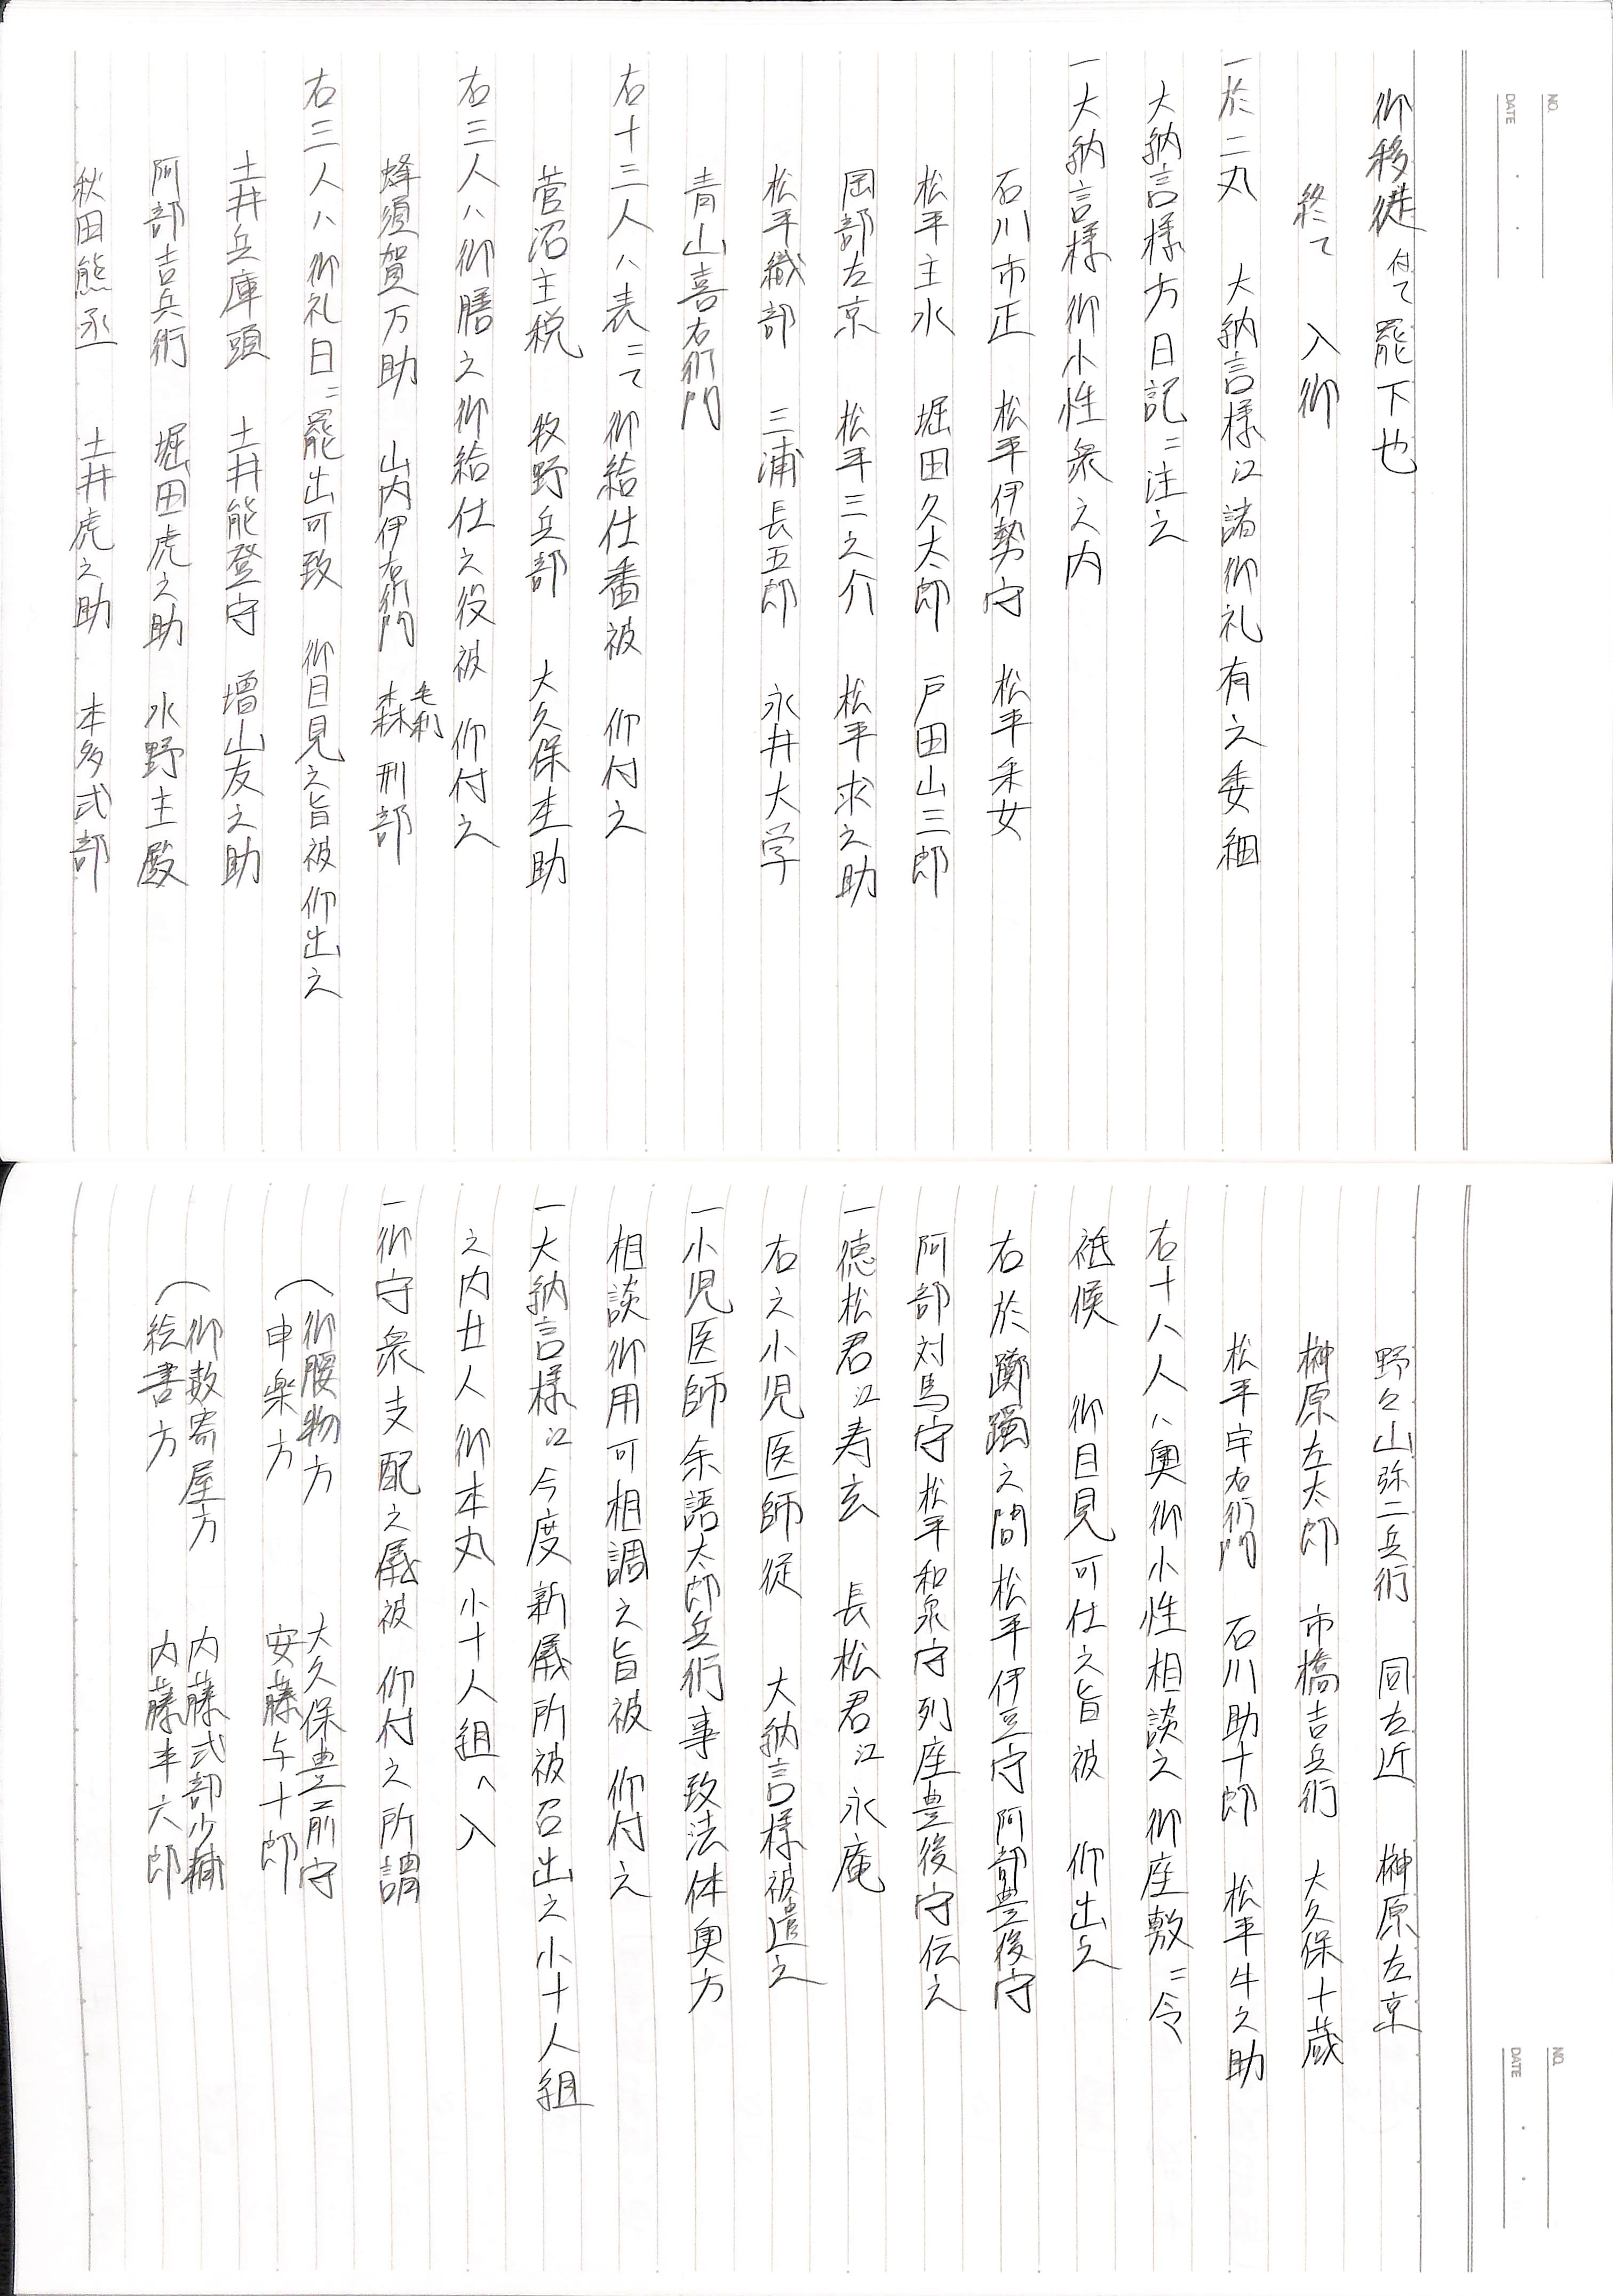 NO.
DATE
御移徙付て罷下也
終て　入御
一於二丸　大納言様江諸御礼有之委細
大納言様方日記ニ注之
一大納言様御小性衆之内
石川市正　松平伊勢守　松平采女
松平主水　堀田久太郎　戸田山三郎
岡部左京　松平三之介　松平求之助
松平織部　三浦長五郎　永井大学
青山喜右衛門
右十三人ハ表ニて御給仕番被　仰付之
菅沼主税　牧野兵部　大久保杢助
右三人ハ御膳之御給仕之役被　仰付之
蜂須賀万助　山内伊右衛門　森毛利刑部
右三人ハ御礼日ニ罷出可致　御目見之旨被仰出之
土井兵庫頭　土井能登守　増山友之助
阿部吉兵衛　堀田虎之助　水野主殿
秋田熊丞　土井虎之助　本多式部
NO.
DATE
野々山弥二兵衛　同左近　榊原左京
榊原左太郎　市橋吉兵衛　大久保十蔵
松平宇右衛門　石川助十郎　松平牛之助
右十八人ハ奥御小性相談之御座敷ニ令
祗候　御目見可仕之旨被　仰出之
右於躑躅之間松平伊豆守阿部豊後守
阿部対馬守松平和泉守列座豊後守伝之
一徳松君江寿玄　長松君江永庵
右之小児医師従　大納言様被遣之
一小児医師余語太郎兵衛事致法体奥方
相談御用可相調之旨被　仰付之
一大納言様江今度新儀所被召出之小十人組
之内廿人御本丸小十人組へ入
一御守衆支配之儀被　仰付之所謂
御腰物方　大久保豊前守
申楽方　安藤与十郎
御数寄屋方　内藤式部少輔
絵書方　内藤半六郎